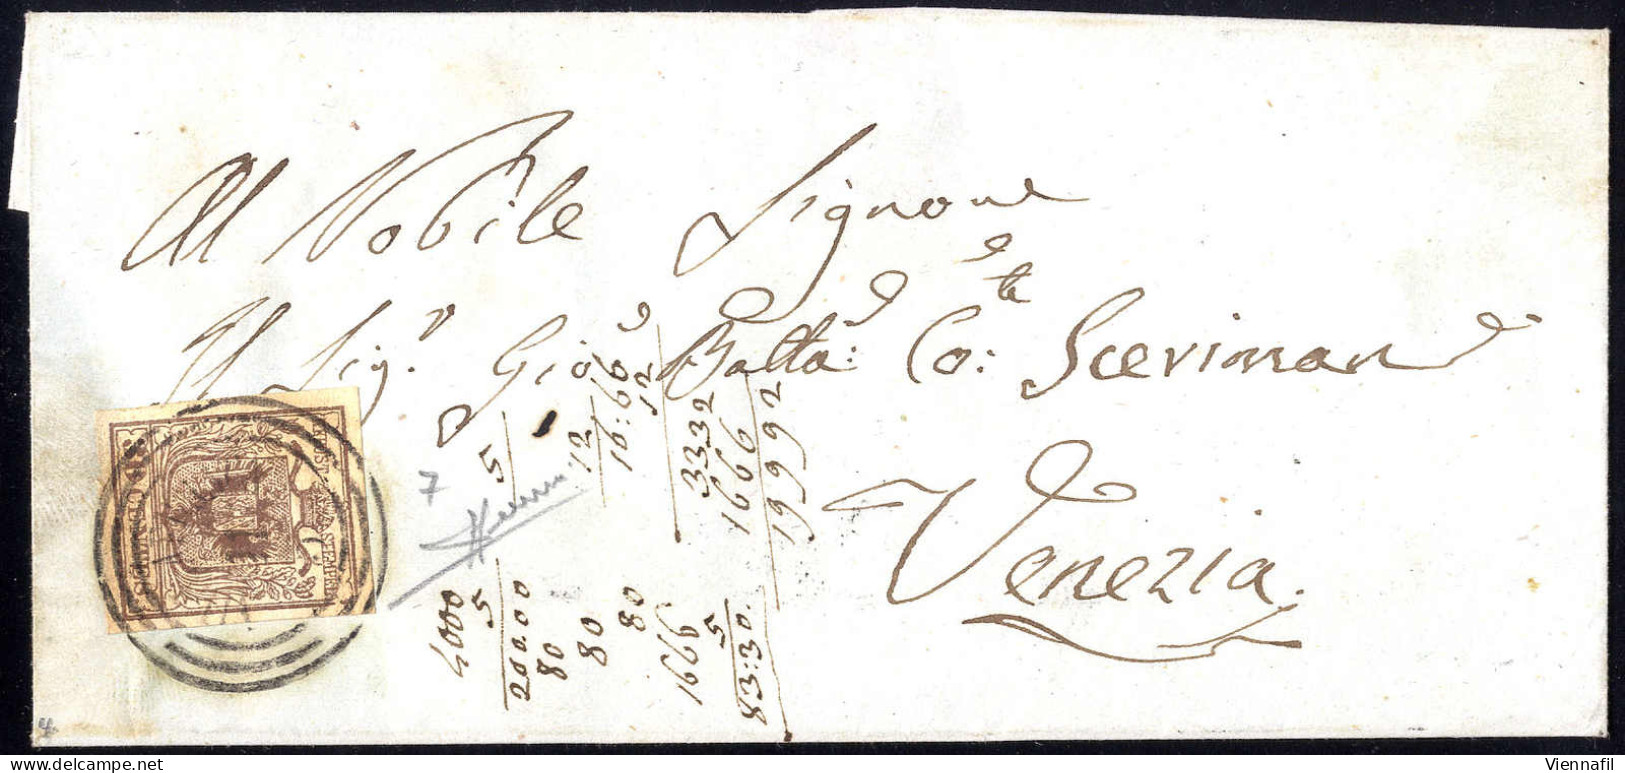 Al Nobile Signore
Il Sig.r Gio Batta: Co:te Sceriman
Venezia.
7
5
12
16:66
12
3332
1666
19992
4000
5
200.00
80
80
80
1666
5
83:30
KKPOST-STEMPEL
4
Viennafil